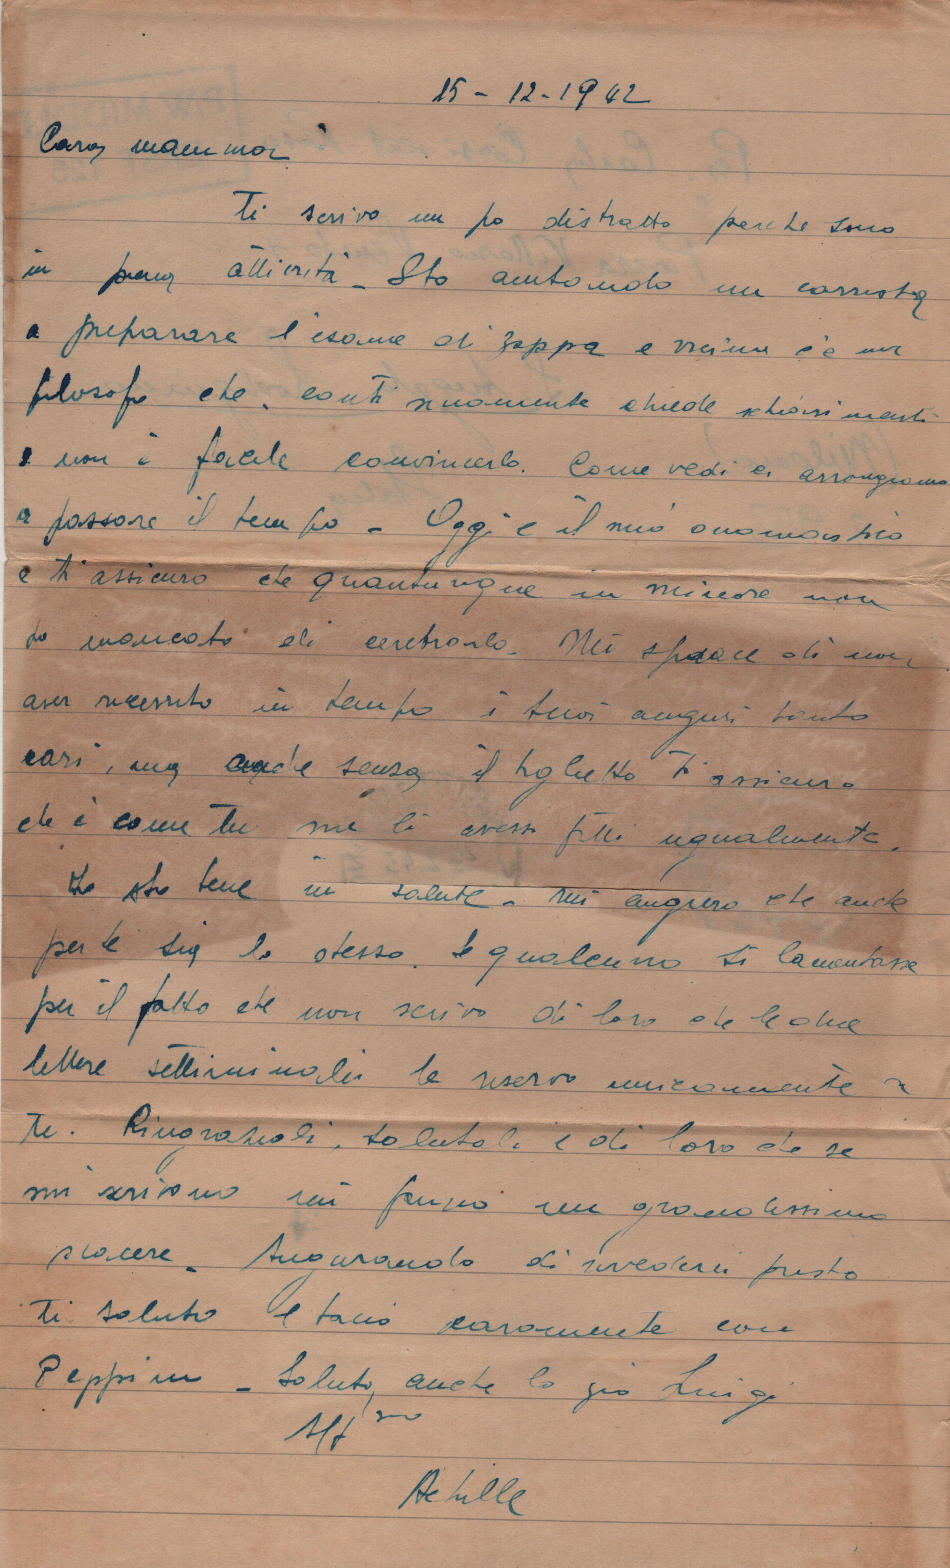 15-12-1942
Cara mamma
Ti scrivo un po distratto perche sono
in piena attività - Sto aiutando un
a preparare l'esame di e vicino c'è un
filosofo che continuamente chiede schiarimenti
e non è facile convincerlo. Come vedi ci arrangiamo
a passare il tempo - Oggi è il mio onomastico
e ti assicuro che quantunque in minore non
ho mancato di Mi spiace di non
aver ricevuto in tempo i tuoi auguri tanto
cari, ma anche senza il biglietto ti assicuro
che è come tu me li avessi fatti ugualmente.
Io sto bene in salute - mi auguro che anche
per te sia lo stesso. Se qualcuno si lamentasse
per il fatto che non scrivo di loro che le due
lettere settimanali le riservo unicamente a
te. Ringraziali, salutali e di loro che se
mi scrivono mi fanno un grandissimo
piacere - Augurando di rivederci presto
ti saluto e bacio caramente con
Peppino - Saluta anche lo zio Luigi
Aff mo
Achille